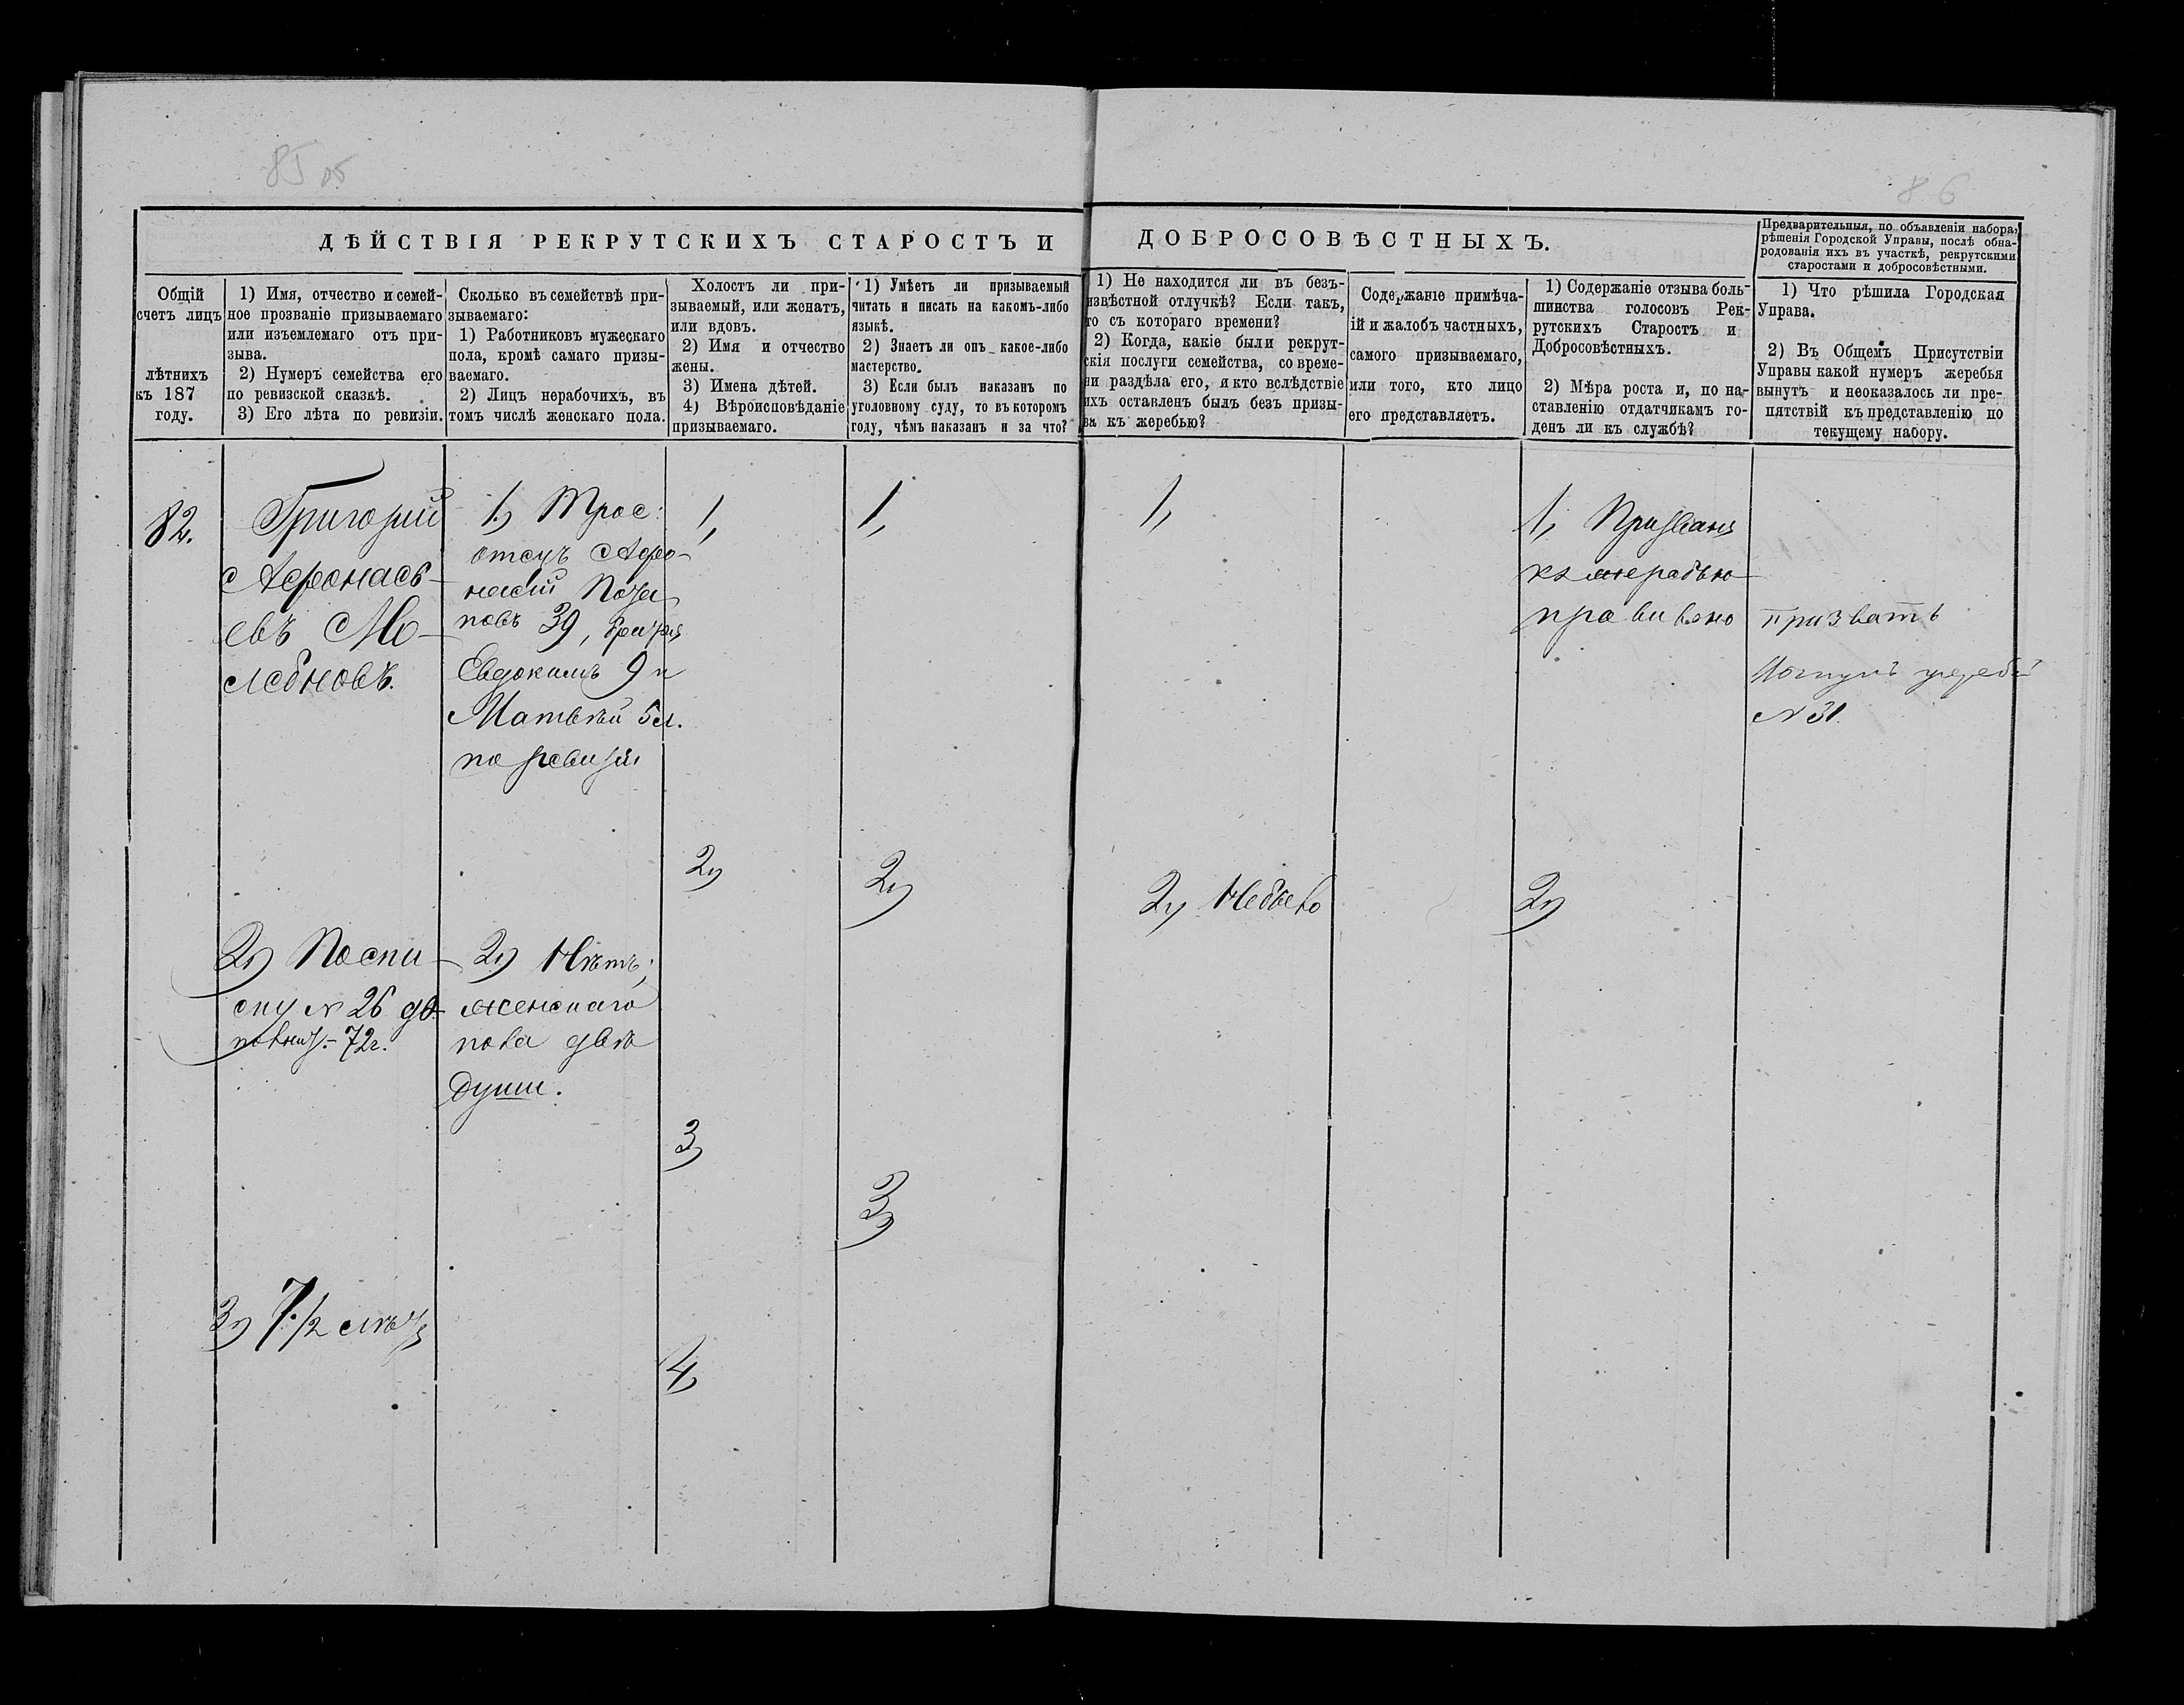 85 об
86
ДѢЙСТВІЯ РЕКРУТСКИХЪ СТАРОСТЪ И ДОБРОСОВѢСТНЫХЪ.
Предварительныя, по объявленіи набора,
рѣшенія Городской Управы, послѣ обна-
родованія ихъ въ участкѣ, рекрутскими
старостами и добросовѣстными.
Общій
счетъ лицъ
лѣтнихъ
къ 187
году.
1) Имя, отчество и семей-
ное прозваніе призываемаго
или изъемлемаго отъ при-
зыва.
2) Нумеръ семейства его
по ревизской сказкѣ.
3) Его лѣта по ревизіи.
Сколько въ семействѣ при-
зываемаго:
1) Работниковъ мужескаго
пола, кромѣ самаго призы-
ваемаго.
2) Лицъ нерабочихъ, въ
томъ числѣ женскаго пола.
Холостъ ли при-
зываемый, или женатъ,
или вдовъ.
2) Имя и отчество
жены.
3) Имена дѣтей.
4) Вѣроисповѣданіе
призываемаго.
1) Умѣетъ ли призываемый
читать и писать на какомъ-либо
языкѣ.
2) Знаетъ ли онъ какое-либо
мастерство.
3) Если былъ наказанъ по
уголовному суду, то въ которомъ
году, чѣмъ наказанъ и за что?
1) Не находится ли въ безъ-
извѣстной отлучкѣ? Если такъ,
то съ котораго времени?
2) Когда, какіе были рекрут-
скія послуги семейства, со време-
ни раздѣла его, и кто вслѣдствіе
ихъ оставленъ былъ безъ призы-
ва къ жеребью?
Содержаніе примѣча-
ій и жалобъ частныхъ,
самого призываемаго,
или того, кто лицо
его представляетъ.
1) Содержаніе отзыва боль-
шинства голосовъ Рек-
рутскихъ Старостъ и
Добросовѣстныхъ.
2) Мѣра роста и, по на-
ставленію отдатчикамъ го-
денъ ли къ службѣ?
1) Что рѣшила Городская
Управа.
2) Въ Общемъ Присутствіи
Управы какой нумеръ жеребья
вынутъ и неоказалось ли пре-
пятствій къ представленію по
текущему набору.
82.
Григорій
Афонась-
евъ Мо-
лебновъ.
2) Поспи-
ску № 26 дв.
72г.
3) 7 1/2
1) Трое:
отецъ Афо-
насій Пота
повъ 39, братья
Евдокимъ 9 и
Матвѣй 5 л.
по ревизіи
2) Нѣтъ;
женскаго
пола двѣ
души.
1,
2)
3)
4)
1,
2)
3)
1,
2) Небыло
1, Призванъ
къ жеребью
правильно
2)
призвать
Вынулъ жеребій
№ 31.